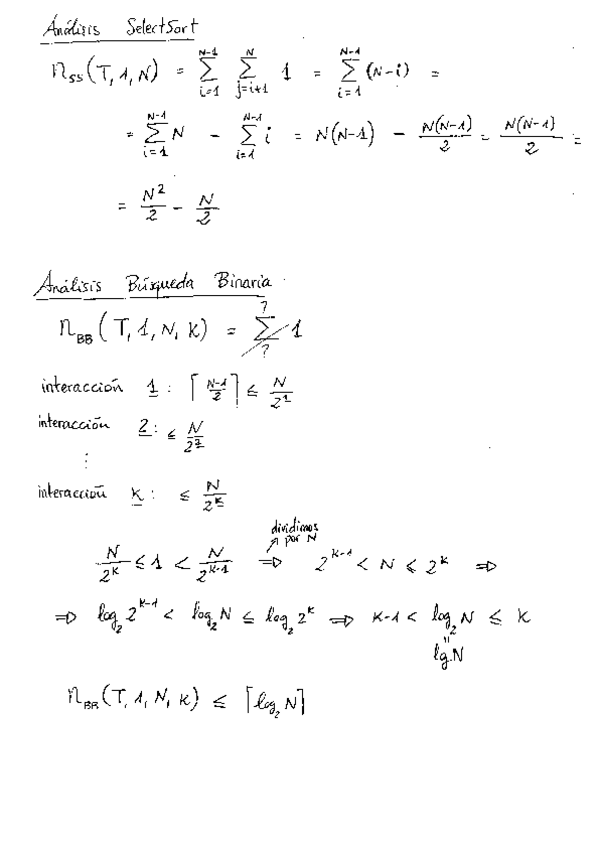 Análisis SelectSort
n_SS(T,1,N) = ∑_{i=1}^{N-1} ∑_{j=i+1}^{N} 1 = ∑_{i=1}^{N-1} (N-i) =
= ∑_{i=1}^{N-1} N - ∑_{i=1}^{N-1} i = N(N-1) - N(N-1)/2 = N(N-1)/2 =
= N²/2 - N/2
Análisis Búsqueda Binaria
n_BB(T,1,N,K) = ∑_{?}^{?} 1
interacción 1: ⌈(N-1)/2⌉ ≤ N/2^1
interacción 2: ≤ N/2^2
⋮
interacción k: ≤ N/2^k
dividimos
por N
N/2^k ≤ 1 < N/2^{k-1} ⇒ 2^{k-1} < N ≤ 2^k ⇒
⇒ log₂ 2^{k-1} < log₂ N ≤ log₂ 2^k ⇒ k-1 < log₂ N ≤ k
"
lg.N
n_BB(T,1,N,K) ≤ ⌈log₂ N⌉